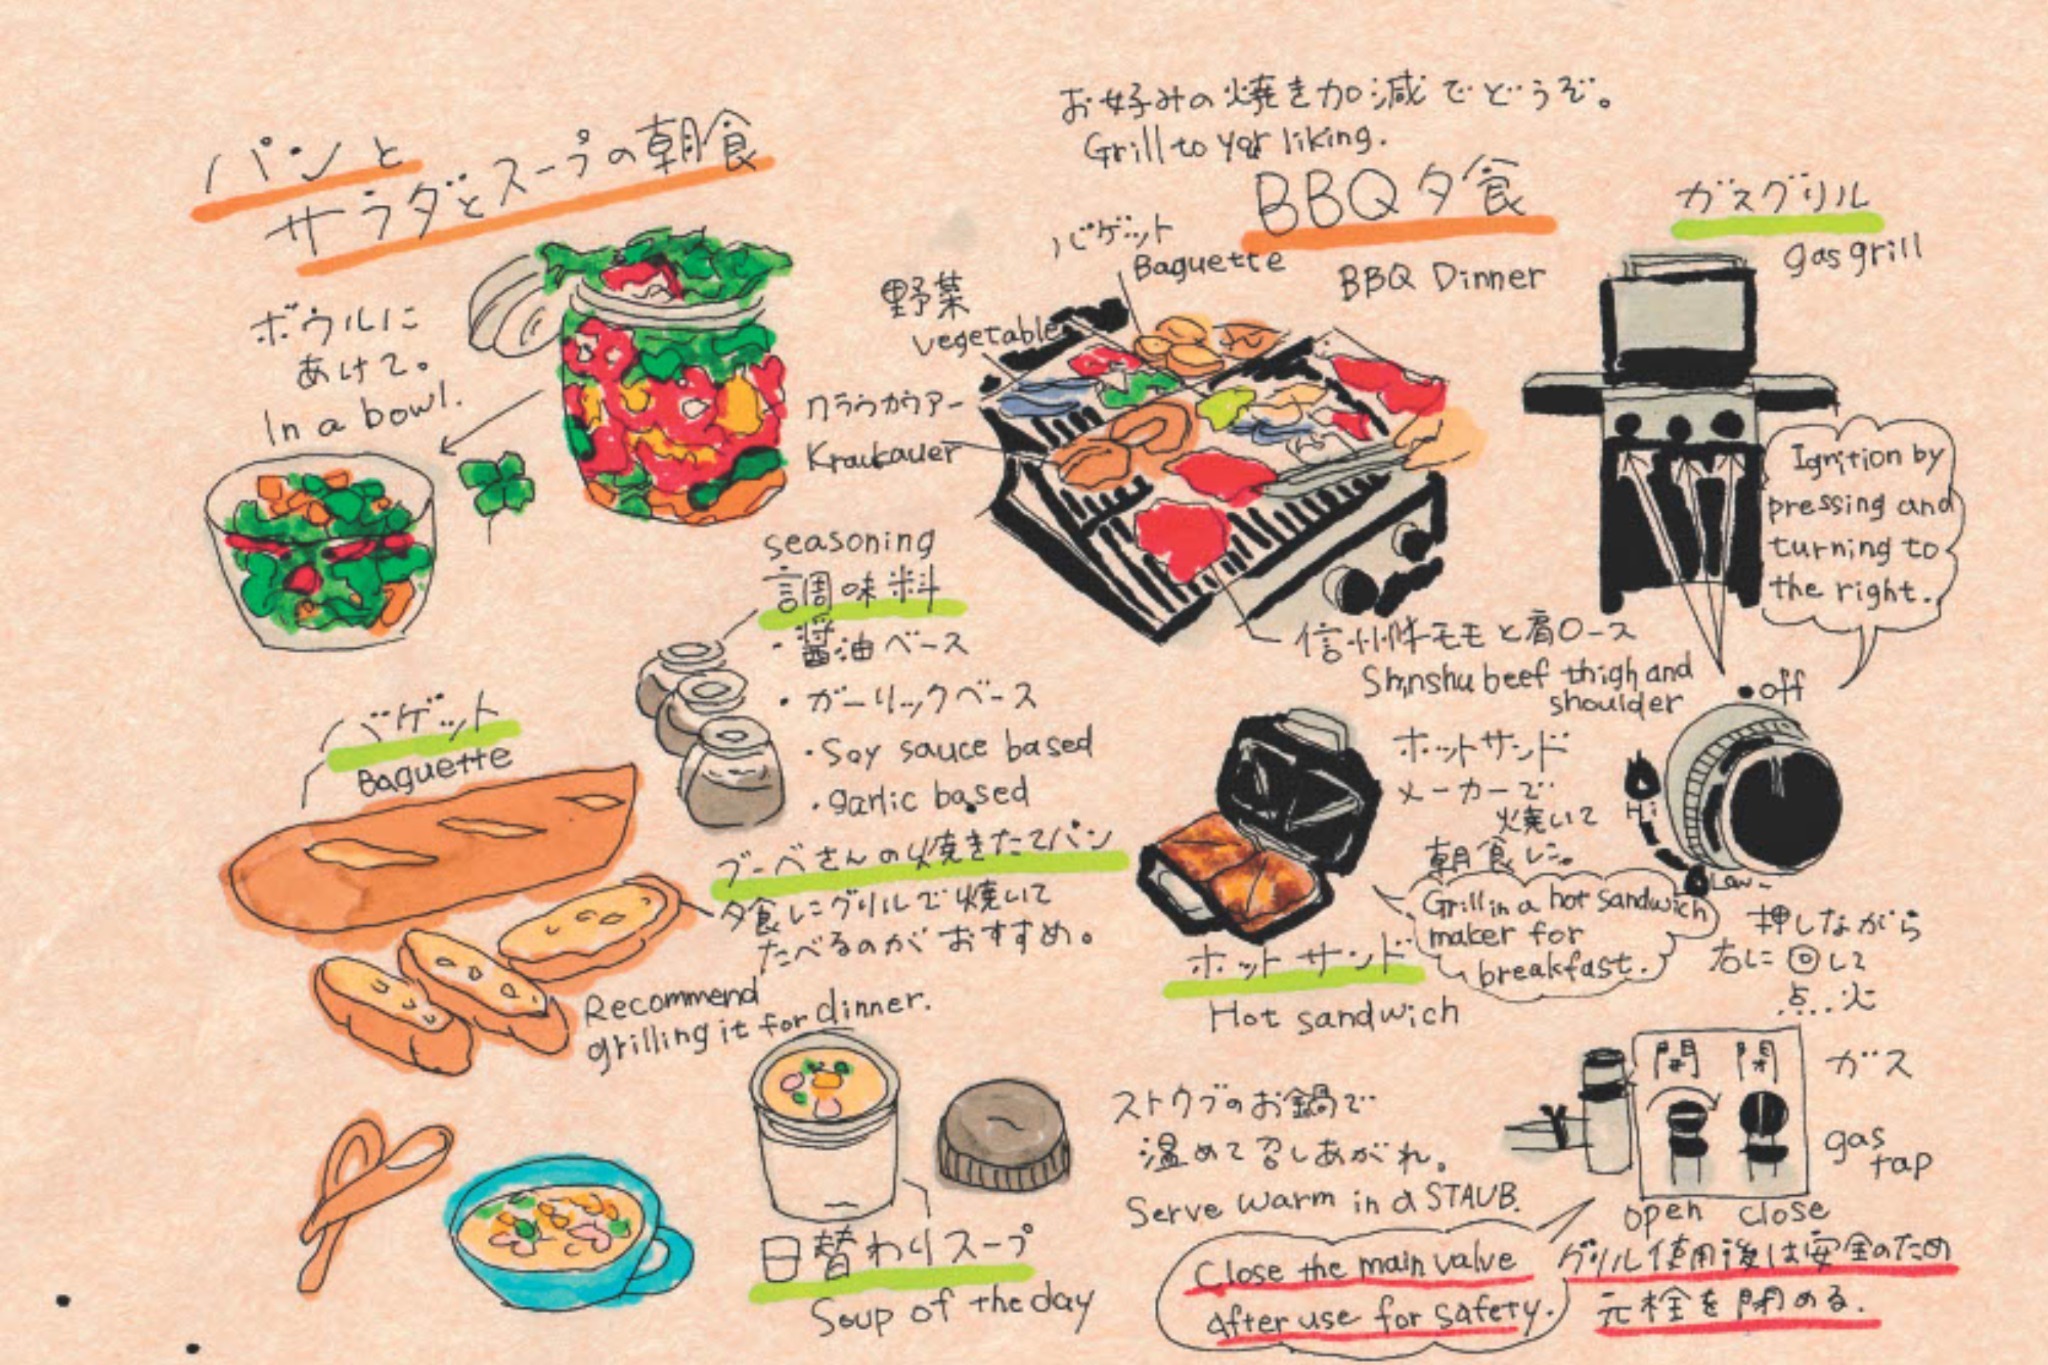 パンと
サラダとスープの朝食
ボウルに
あけて。
In a bowl.
seasoning
調味料
・醤油ベース
・ガーリックベース
・Soy sauce based
・garlic based
バゲット
Baguette
ブーベさんの焼きたてパン
夕食にグリルで焼いて
たべるのがおすすめ。
Recommend
grilling it for dinner.
日替わりスープ
Soup of the day
お好みの焼き加減でどうぞ。
Grill to your liking.
BBQ夕食
BBQ Dinner
バゲット
Baguette
野菜
vegetable
クラウカウアー
Kraukauer
信州牛モモと肩ロース
Shinshu beef thigh and
shoulder
ガスグリル
gas grill
Ignition by
pressing and
turning to
the right.
off
Hi
Low
押しながら
右に回して
点火
ホットサンド
メーカーで
焼いて
朝食に。
Grill in a hot sandwich
maker for
breakfast.
ホットサンド
Hot sandwich
ストウブのお鍋で
温めて召しあがれ。
Serve warm in a STAUB.
開 閉
ガス
gas
tap
open close
Close the main valve
After use for safety.
グリル使用後は安全のため
元栓を閉める。